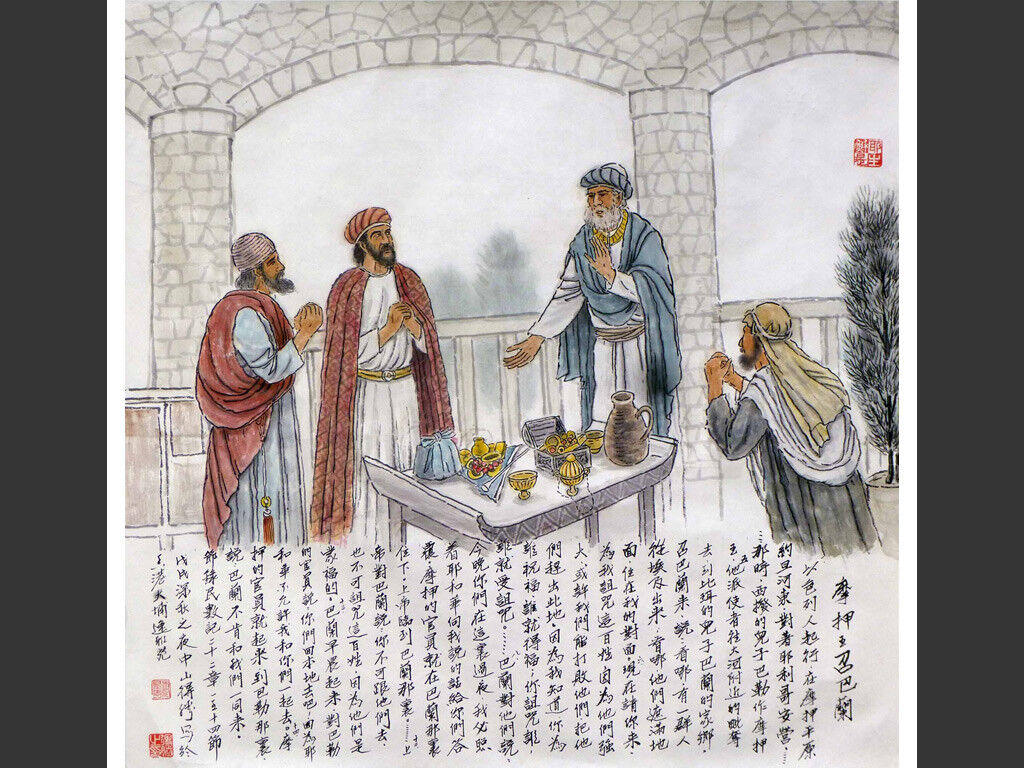 摩押王召巴蘭
以色列人起行,在摩押平原
約旦河東對着耶利哥安營.…
…那時,西撥的兒子巴勒作摩押
王.他派使者往大河附近的毗奪
去到比珥的兒子巴蘭的家鄉
召巴蘭來,說,看哪有一群人
從埃及出來,看哪他們遮滿地
面,住在我的對面.現在請你來,
為我詛咒這百姓,因為他們強
大,或許我們能打敗他們把他
們趕出此地,因為我知道你為
誰祝福,誰就得福,你詛咒誰,
誰就受詛咒.……巴蘭對他們說,
今晚你們在這裏過夜,我必照
着耶和華向我說的話給你們答
覆,摩押的官員就在巴蘭那裏
住下.上帝臨到巴蘭那裏.…上
帝對巴蘭說,你不可跟他們去,
也不可詛咒這百姓,因為他們是
蒙福的.巴蘭早晨起來對巴勒
的官員說,你們回本地去吧,因為耶
和華不允許我和你們一起去.摩
押的官員就起來,到巴勒那裏,
說,巴蘭不肯和我們一同來.
節錄民數記二十二章一至十四節
戊戌深秋之夜中山得写於
大埔逸雅苑